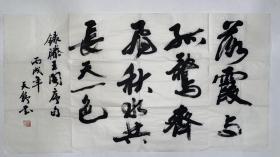 落霞与
孤鹜齐
飞秋水共
長天一色
錄滕王阁序句
丙戌年